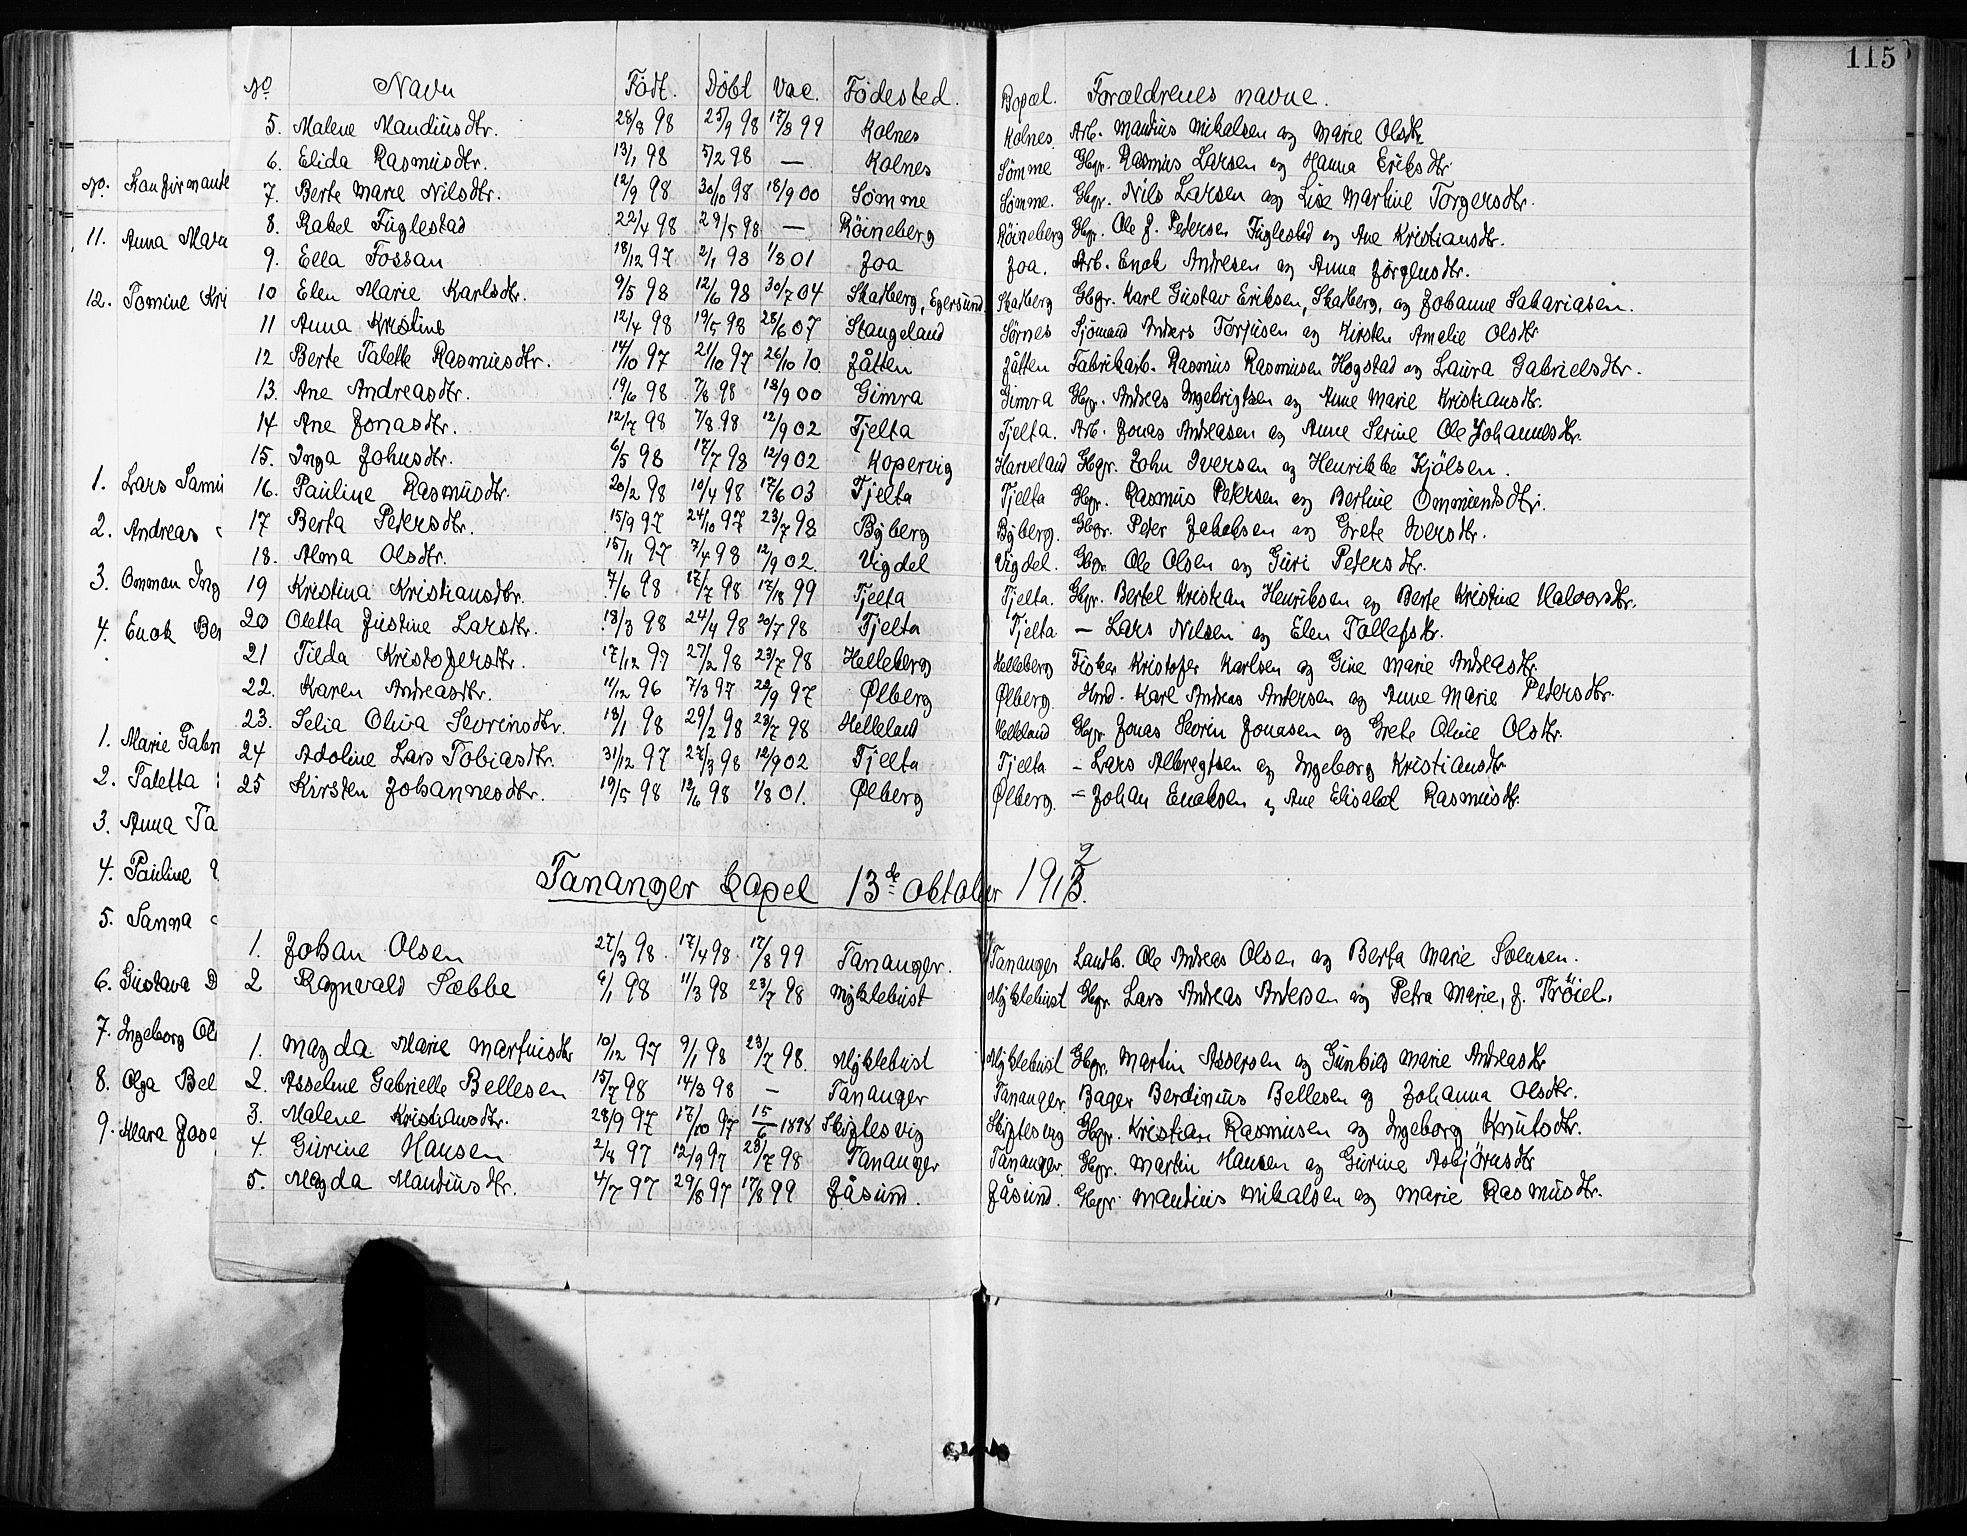 115
No Navn Födt. Döbt Vac. Födested. Bopæl. Forældrenes navne.
5. Malene Maudiusdtr. 28/8 98 25/9 98 17/8 99 Kolnes Kolnes. Arb. Maudius Mikalsen og Marie Olsdtr
6. Elida Rasmusdtr. 13/1 98 5/2 98 — Kolnes Sömme Gbgr. Rasmus Larsen og Hanna Eriksdtr
7. Berte Marie Nilsdtr. 12/9 98 30/10 98 18/9 00 Sömme Sömme. Gbgr. Nils Larsen og Lise Martine Torgersdtr.
8. Rakel Fuglestad 22/4 98 29/5 98 — Röineberg Röineberg Gbgr. Ole J. Pedersen Fuglestad og Ane Kristiansdtr.
9. Ella Fossan 18/12 97 2/1 98 1/8 01 Joa Joa. Arb. Enok Andresen og Anna Jörgensdtr.
10 Elen Marie Karlsdtr. 9/5 98 12/6 98 30/7 04 Skatberg, Egersund Skatberg Gbgr. Karl Gustav Eriksen, Skatberg, og Johanne Sakariasen.
11 Anna Kristine 12/4 98 19/5 98 28/6 07 Stangeland Sörnes Sjömand Anders Torjusen og Kirsten Amalie Olsdtr
12 Berte Talette Rasmusdtr. 14/10 97 21/10 97 26/10 10 Jåtten Jåtten Fabrikarb. Rasmus Rasmusen Hogstad og Laura Gabrielsdtr.
13. Ane Andreasdtr. 19/6 98 7/8 98 18/9 00 Gimra Gimra Gbgr. Andreas Ingebrigtsen og Anne Marie Kristiansdtr.
14 Ane Jonasdtr. 12/7 98 7/8 98 12/9 02 Tjelta Tjelta. Arb. Jonas Andreasen og Anne Serine Ole Johannesdtr.
15. Inga Johnsdtr. 6/5 98 17/7 98 12/9 02 Kopervig Harveland Gbgr. John Iversen og Henrikke Kjölsen.
16. Pauline Rasmusdtr. 20/2 98 10/4 98 17/6 03 Tjelta Tjelta Gbgr. Rasmus Petersen og Bertine Ommundsdtr.
17 Berta Petersdtr. 15/9 97 24/10 97 23/7 98 Byberg Byberg. Gbgr. Peder Jakobsen og Grete Iversdtr.
18. Alma Olsdtr. 15/11 97 7/4 98 12/9 02. Vigdel Vigdel. Gbgr. Ole Olsen og Guri Petersdtr.
19 Kristina Kristiansdtr. 7/6 98 17/7 98 17/18 99 Tjelta Tjelta. Gbgr. Bertel Kristian Henriksen og Berte Kristine Halvorsdtr.
20 Oletta Justine Larsdtr. 18/3 98 24/4 98 20/7 98 Tjelta Tjelta — Lars Nilsen og Elen Tollefsdtr.
21 Tilda Kristofersdtr. 17/12 97 27/2 98 23/7 98 Helleberg Helleberg Fisker Kristofer Karlsen og Gine Marie Andreasdtr.
22. Karen Andreasdtr. 11/12 96 7/3 97 22/9 97 Ølberg Ølberg. Hmd. Karl Andreas Andersen og Anne Marie Petersdtr.
23. Selia Oliva Sevrinsdtr. 18/1 98 29/2 98 23/7 98 Helleland Helleland Gbgr Jonas Sevrin Jonasen og Grete Olivie Olsdtr.
24 Adoline Lars Tobiasdtr. 31/12 97 27/3 98 12/9 02 Tjelta Tjelta – Lars Albregtsen og Ingeborg Kristiansdtr
25 Kirsten Johannesdtr. 19/5 98 12/6 98 1/8 01. Ølberg Ølberg. – Johan Enoksen og Ane Elisabet Rasmusdtr.
Tananger Kapel 13de oktober 1912.
1. Johan Olsen 27/3 98. 17/4 98 17/8 99 Tananger. Tananger Landb. Ole Andreas Olsen og Berta Marie Soensen.
2 Ragnvald Sæbbe 6/1 98 11/3 98 23/7 98 Myklebust Myklebust Gbgr. Lars Andreas Andersen og Petra Marie, f. Tröiel.
1. Magda Marie Martinsdtr 10/12 97 9/1 98 23/7 98. Myklebust Myklebust Gbgr. Martin Assersen og Gunhild Marie Andreasdtr
2. Asseline Gabrielle Bellesen 15/7 98 14/3 98 — Tananger Tananger. Bager Berdinius Bellesen og Johanna Olsdtr.
3. Malene Kristiansdtr. 28/9 97 17/10 97 15/6 1898 Skiftesvig Skiftesvig Gbgr. Kristian Rasmusen og Ingeborg Knutsdtr.
4. Gurine Hansen 2/8 97 12/9 97 23/7 98 Tananger Tananger. Gbgr. Martin Hansen og Gurine Asbjörnsdtr
5. Magda Maudiusdtr. 4/7 97 29/8 97 17/8 99 Jåsund. Jåsund. Gbgr. Maudius Mikalsen og Marie Rasmusdtr.
No. Konfirmante
11. Anna Mara
12. Tomine Kri
1. Lars Samu
2. Andreas
3. Omman Ing
4. Enok Ber
1. Marie Gabri
2. Taletta
3. Anna Ta
4. Pauline
5. Sanna
6. Gustava
7. Ingeborg Ol
8. Olga Bel
9. Mara Jose